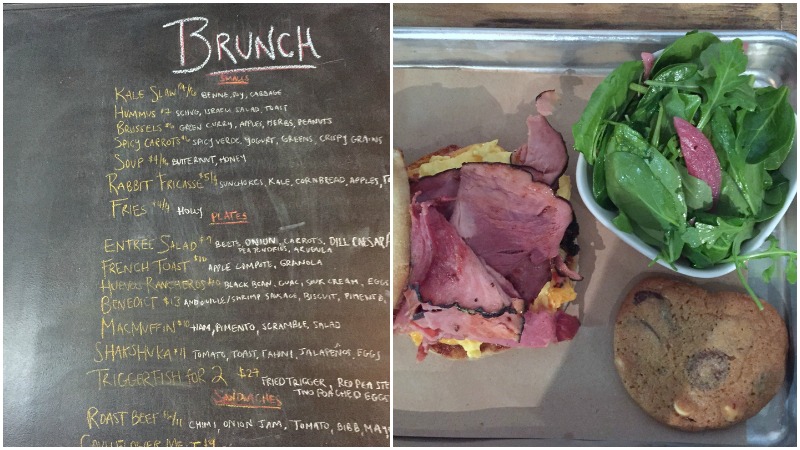 BRUNCH
SMALLS
KALE SLAW $4/6 BENNE, SOY, CABBAGE
HUMMUS $7 SCHUG, ISRAELI SALAD, TOAST
BRUSSELS GREEN CURRY, APPLES, HERBS, PEANUTS
SPICY CARROTS SPICY VERDE, YOGURT, GREENS, CRISPY GRAINS
SOUP $4/6 BUTTERNUT, HONEY
RABBIT FRICASSE SUNCHOKES, KALE, CORNBREAD, APPLES,
FRIES HOLLY
PLATES
ENTREE SALAD BEETS, ONION, CARROTS, DILL CAESAR
PEA TENDRILS, ARUGULA
FRENCH TOAST APPLE COMPOTE, GRANOLA
HUEVOS RANCHEROS BLACK BEAN, GUAC, SOUR CREAM, EGGS
BENEDICT $13 ANDOUILLE/SHRIMP SAUSAGE, BISCUIT, PIMENTO,
MACMUFFIN $10 HAM, PIMENTO, SCRAMBLE, SALAD
SHAKSHUKA $11 TOMATO, TOAST, TAHINI, JALAPEÑOS, EGGS
TRIGGERFISH FOR 2 $27 FRIED TRIGGER, RED PEA STE
TWO POACHED EGGS
SANDWICHES
ROAST BEEF CHIMI, ONION JAM, TOMATO, BIBB, MAYO
CAULIFLOWER